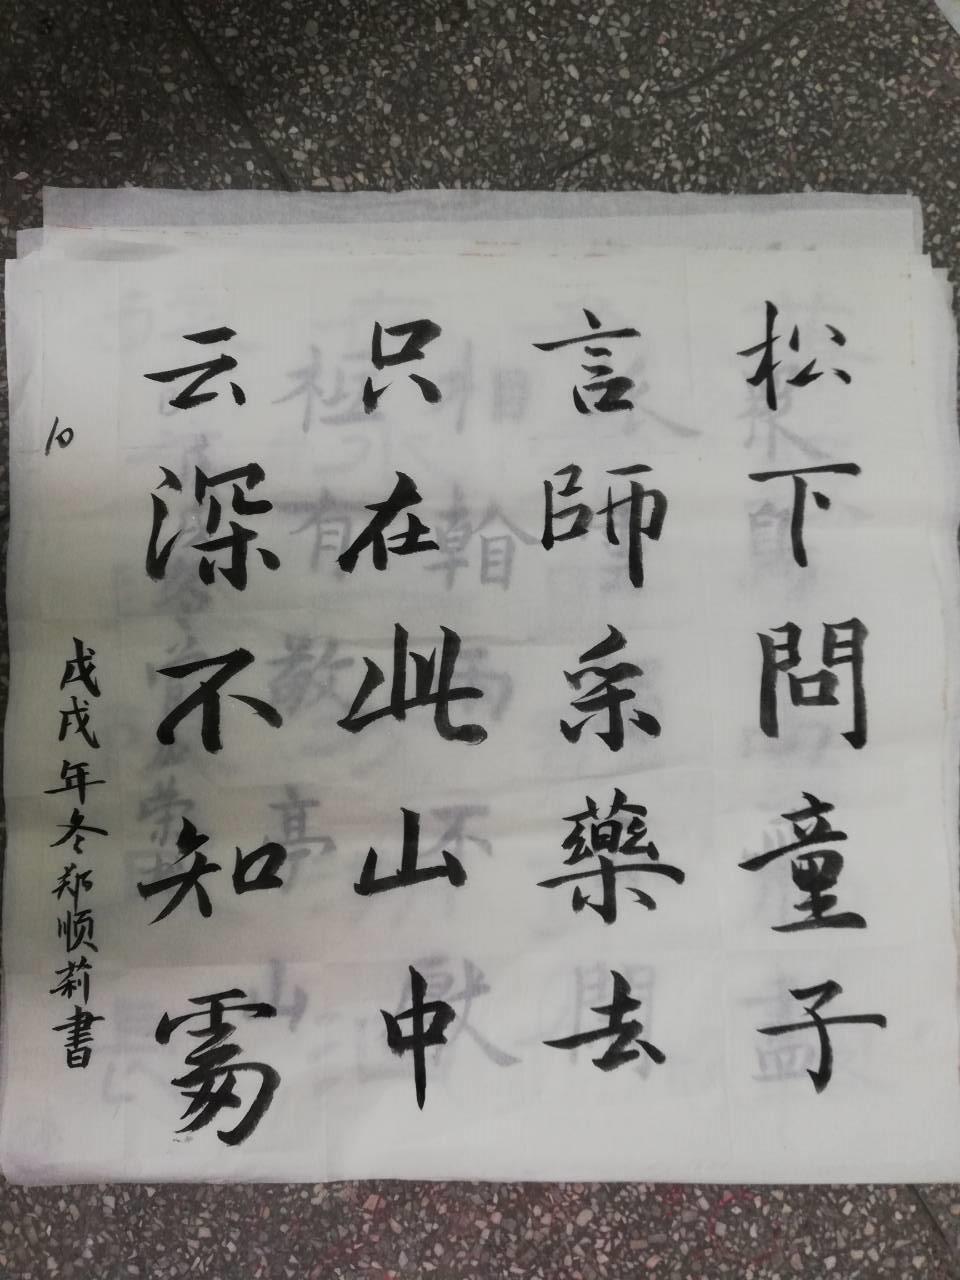 松下問童子
言師采藥去
只在此山中
云深不知處
戊戌年冬郑顺莉書
10